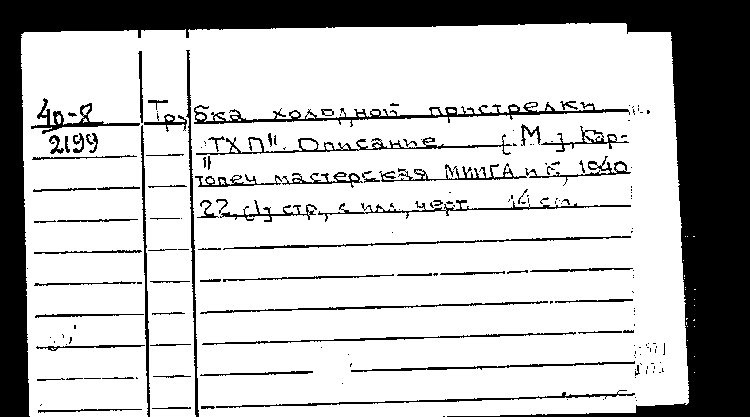 40-8 Трубка холодной пристрелки
2199 "ТХП". Описание [М], Кар-
топеч мастерская МИИГА и К, 1940
22, [1] стр., с илл., черт 14 см.